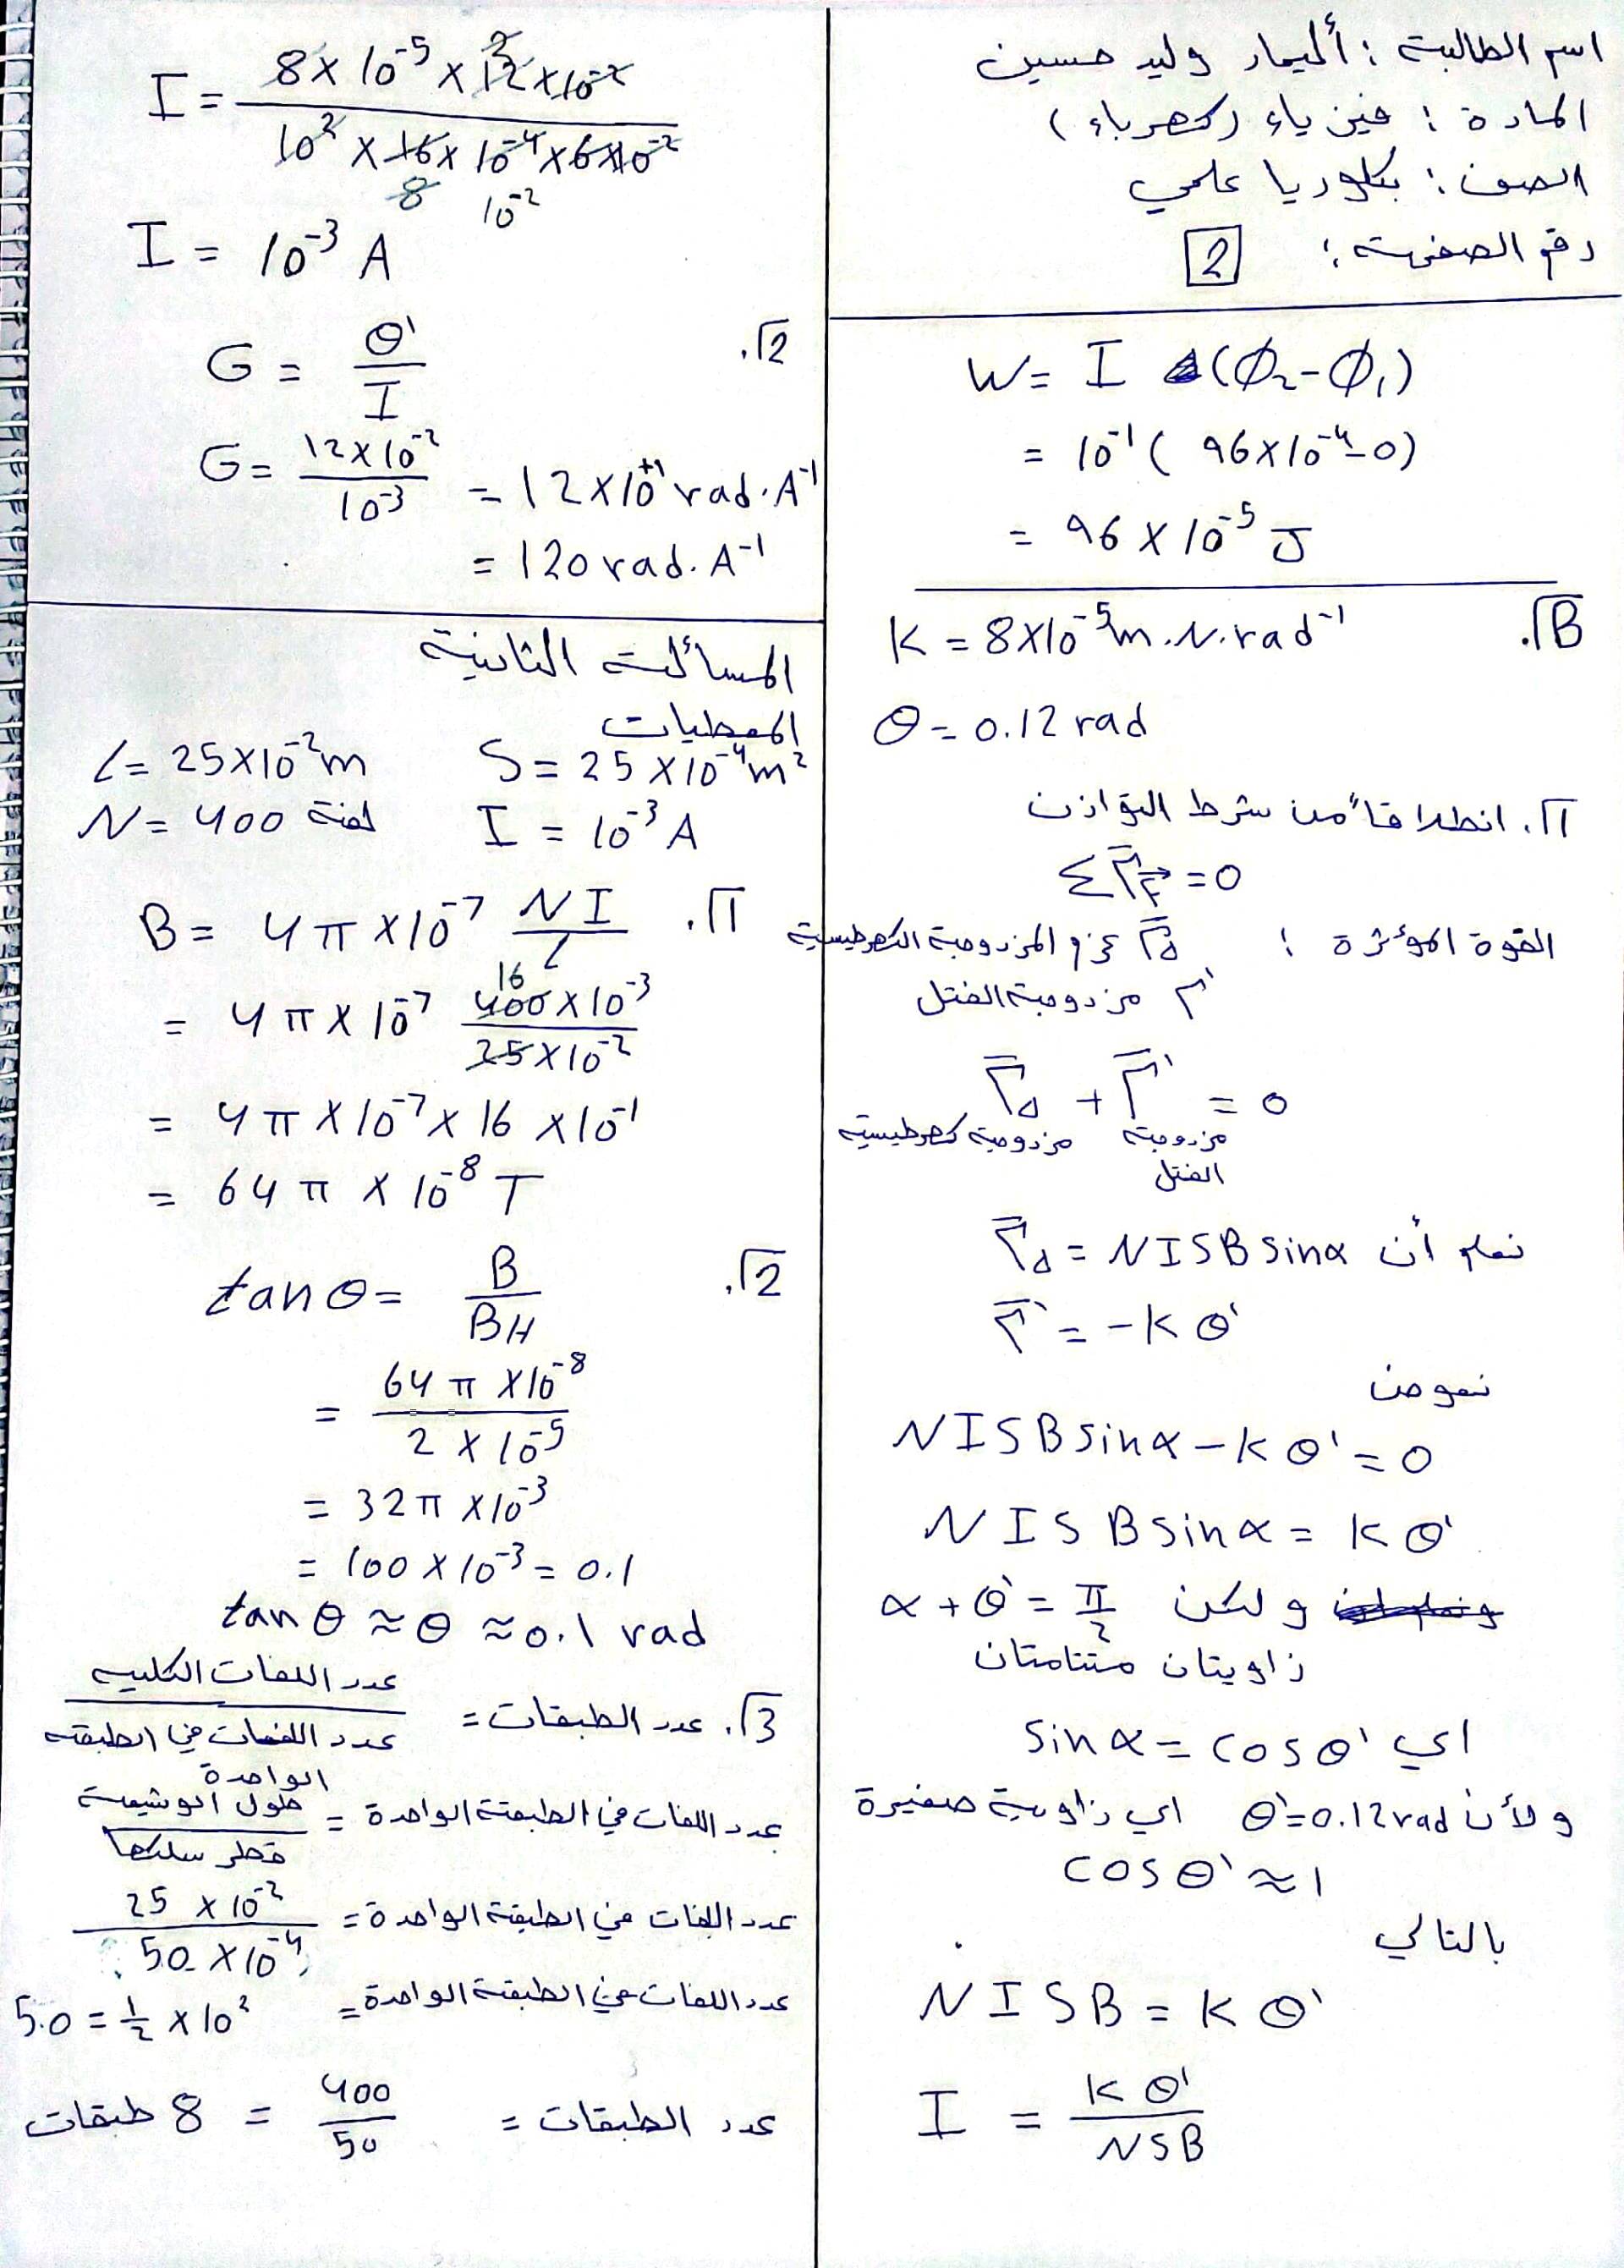 اسم الطالبة : ألميار وليد حسين
المادة : فيزياء (كهرباء)
الصف : بكلوريا علمي
رقم الصفحة : 2
W = I (Φ₂ - Φ₁)
= 10⁻¹ ( 96×10⁻⁴ - 0)
= 96 × 10⁻⁵ J
B.
K = 8×10⁻⁵ m.N.rad⁻¹
θ = 0.12 rad
1. انطلاقاً من شرط التوازن
ΣΓ_F = 0
القوة المؤثرة : Γ_Δ عزم المزدوجة الكهرطيسية
Γ' مزدوجة الفتل
Γ_Δ + Γ' = 0
مزدوجة كهرطيسية مزدوجة
الفتل
نعلم أن Γ_Δ = NISB sinα
Γ' = -Kθ'
نعوض
NISB sinα - Kθ' = 0
NISB sinα = Kθ'
ولكن α + θ' = π/2
زاويتان متتامتان
اي sinα = cosθ'
ولأن θ' = 0.12 rad اي زاوية صغيرة
cosθ' ≈ 1
بالتالي
NISB = Kθ'
I = Kθ' / NSB
I = 8×10⁻⁵ × 12×10⁻² / 10² × 16 × 10⁻⁴ × 6×10⁻²
2
8 10⁻²
I = 10⁻³ A
2.
G = θ' / I
G = 12×10⁻² / 10⁻³ = 12×10⁺¹ rad.A⁻¹
= 120 rad.A⁻¹
المسألة الثانية
المعطيات
L = 25×10⁻² m S = 25×10⁻⁴ m²
N = 400 لفة I = 10⁻³ A
1. B = 4π×10⁻⁷ NI / L
= 4π×10⁻⁷ 400×10⁻³ / 25×10⁻²
16
= 4π×10⁻⁷ × 16 × 10⁻¹
= 64π × 10⁻⁸ T
2. tanθ = B / BH
= 64π×10⁻⁸ / 2×10⁻⁵
= 32π×10⁻³
= 100×10⁻³ = 0.1
tanθ ≈ θ ≈ 0.1 rad
3. عدد الطبقات = عدد اللفات الكلية / عدد اللفات في الطبقة الواحدة
عدد اللفات في الطبقة الواحدة = طول الوشيعة / قطر سلكها
عدد اللفات في الطبقة الواحدة = 25×10⁻² / 50×10⁻⁴
عدد اللفات في الطبقة الواحدة = 1/2 × 10² = 50
عدد الطبقات = 400 / 50 = 8 طبقات